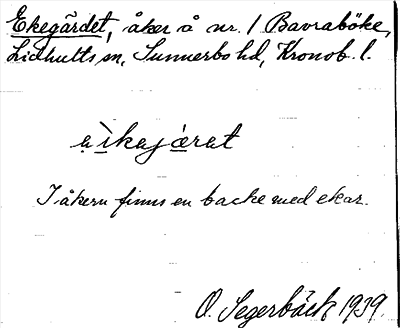 Ekegärdet, åker å nr. 1 Bavraböke,
Lidhults sn, Sunnerbo hd, Kronob. l.
I åkern finns en backe med ekar.
O. Segerbäck 1939.